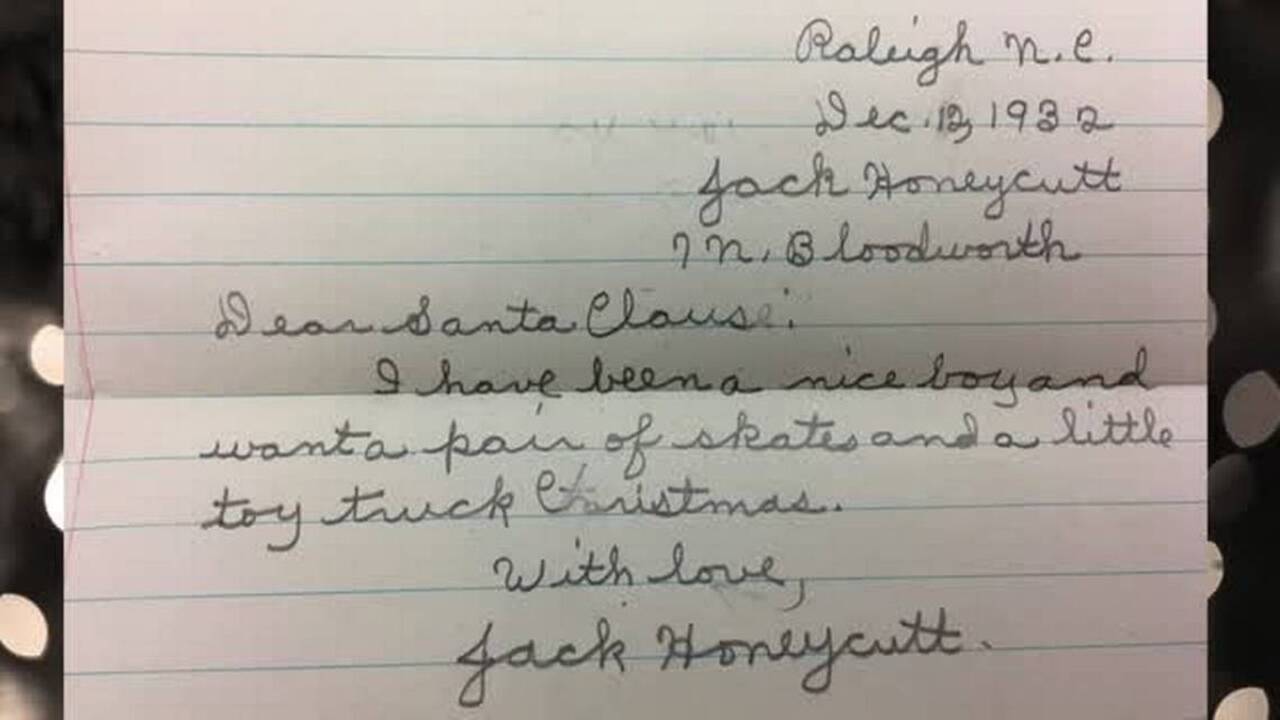 Raleigh N.C.
Dec. 12, 1932
Jack Honeycutt
7 N. Bloodworth
Dear Santa Clause:
I have been a nice boy and
want a pair of skates and a little
toy truck Christmas.
With love,
Jack Honeycutt.